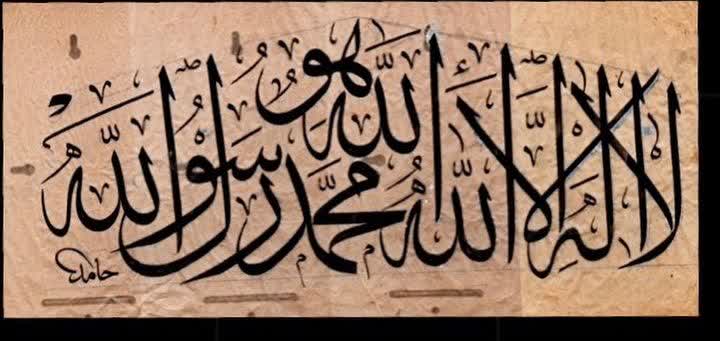 لا اله الا الله هو الله محمد رسول الله
حامد